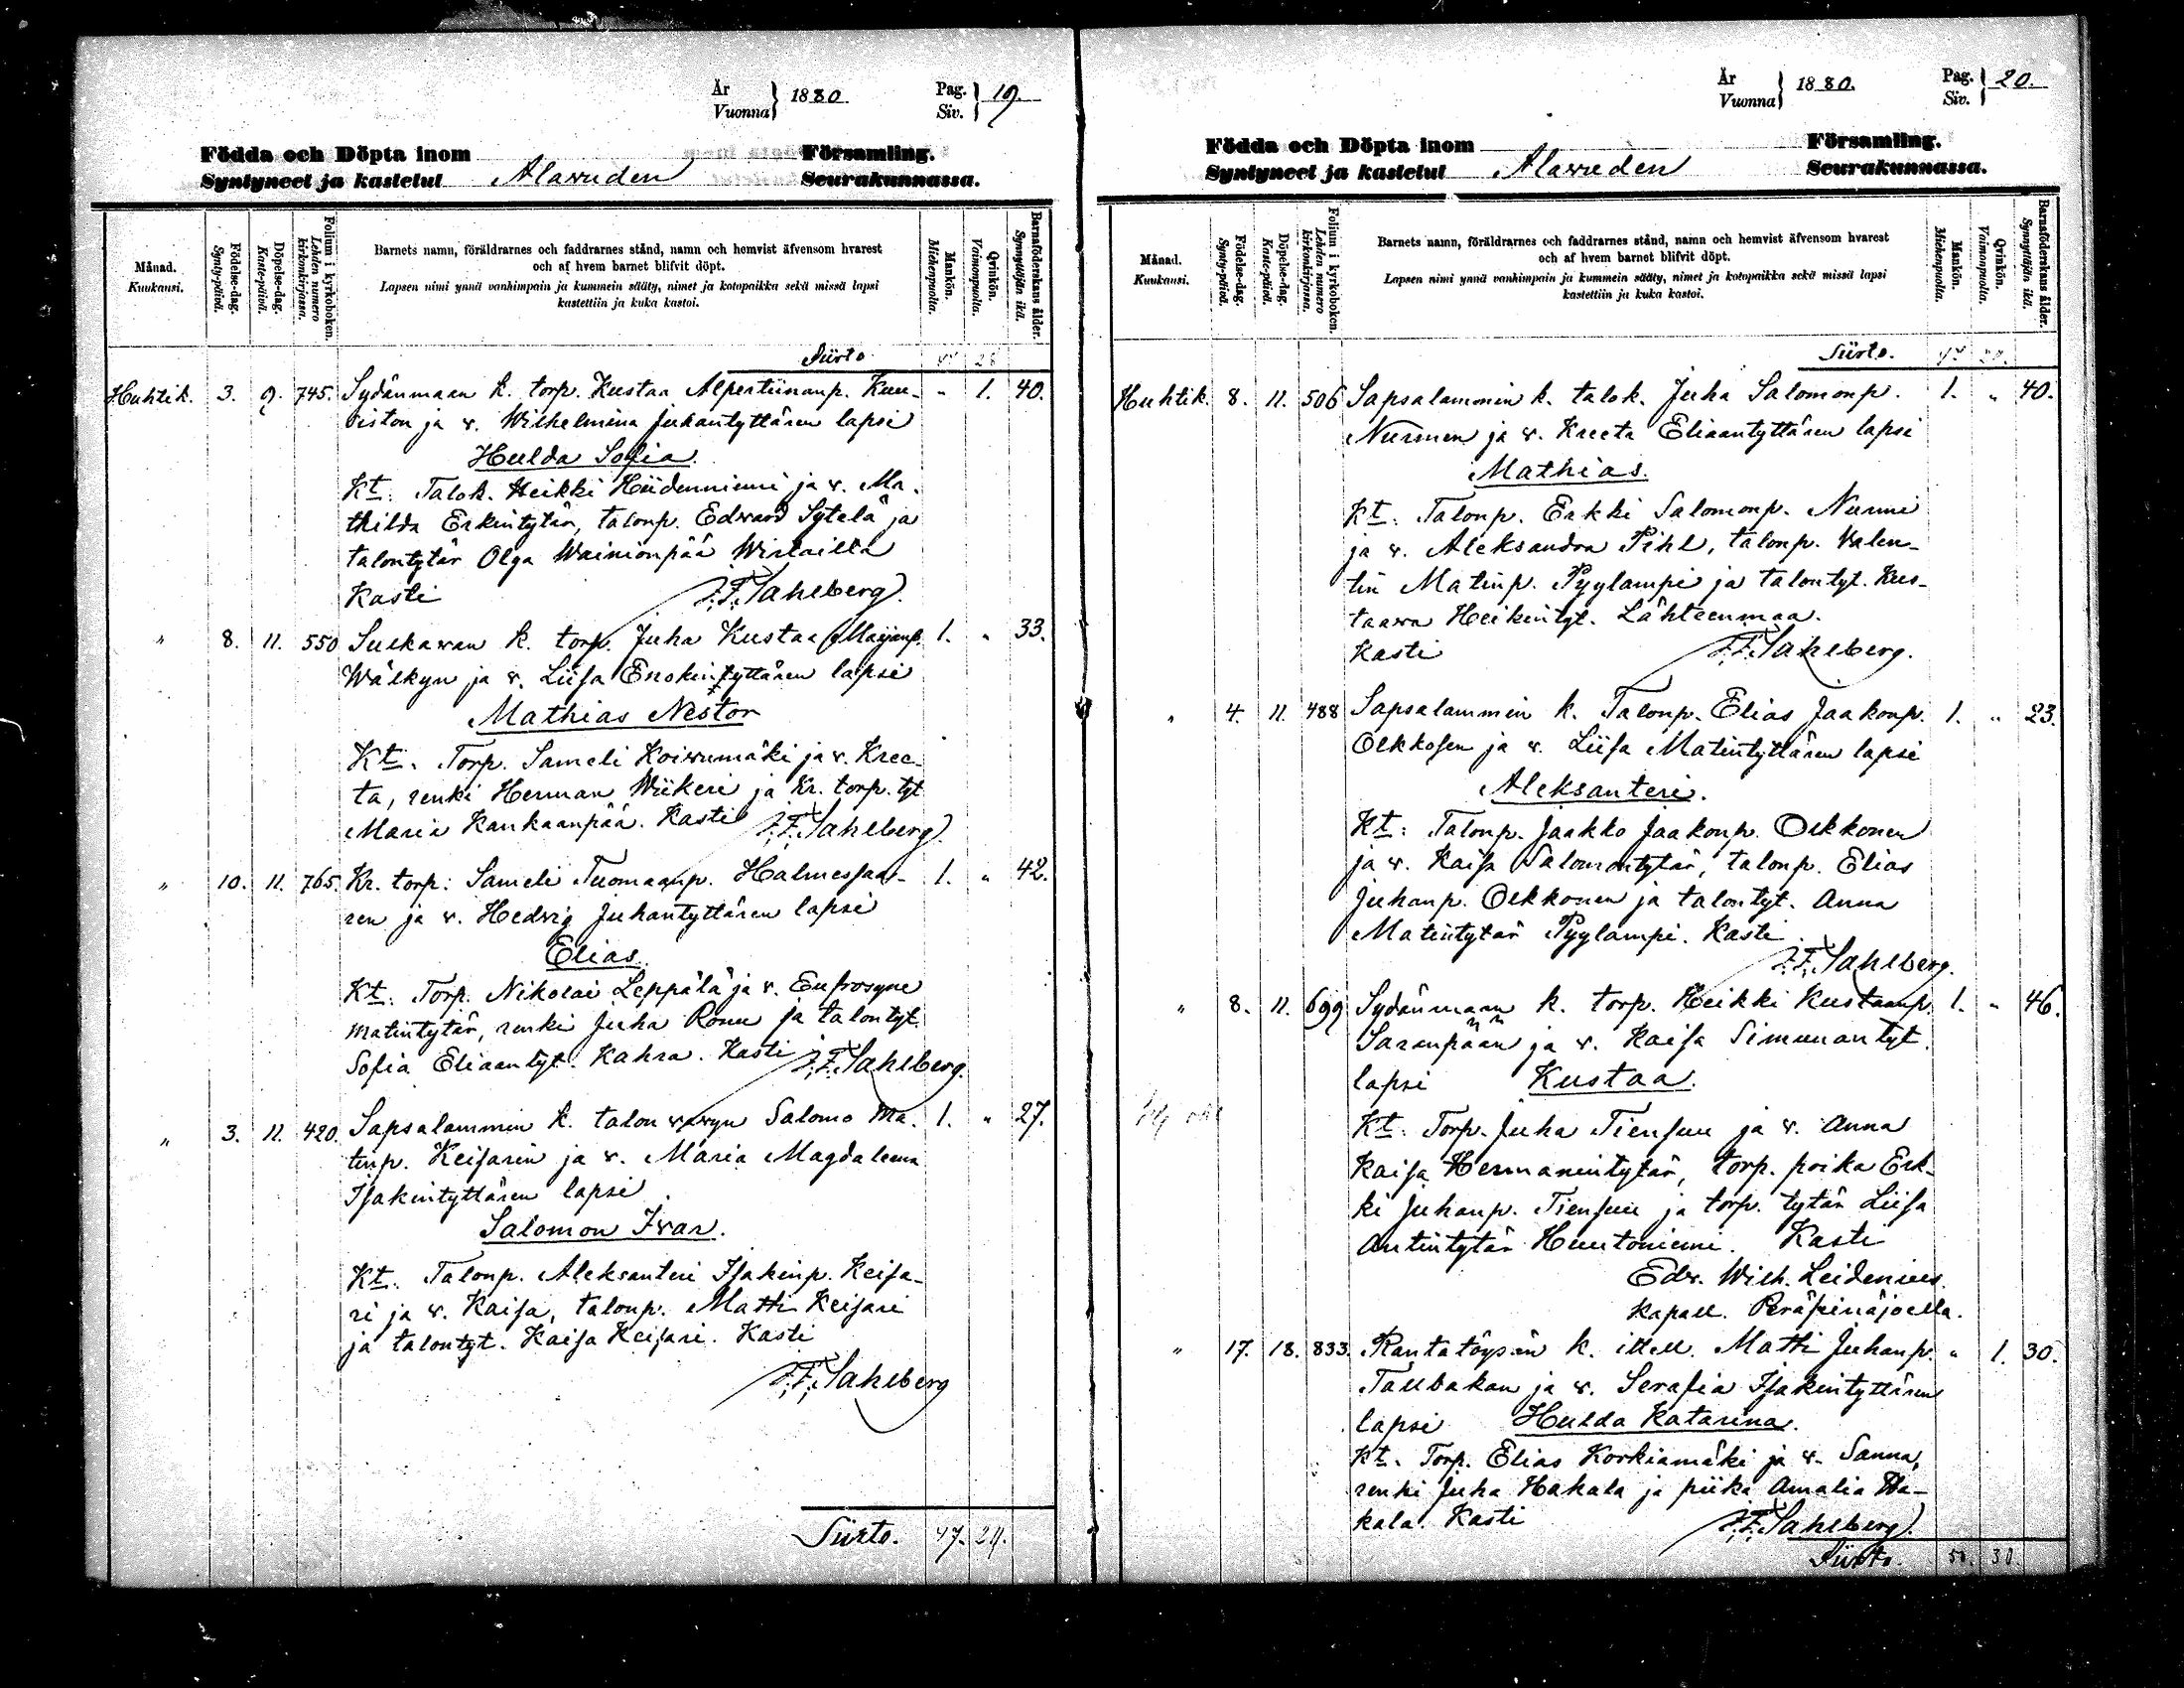 År
Vuonna } 1880.
Pag.
Siv. } 19.
Födda och Döpta inom
Syntyneet ja kastetut
Alavuden
Församling.
Seurakunnassa.
Månad.
Kuukausi.
Födelse-dag.
Synty-päivä.
Döpelse-dag.
Kaste-päivä.
Folium i kyrkoboken.
Lehden numero kirkonkirjassa.
Barnets namn, föräldrarnes och faddrarnes stånd, namn och hemvist äfvensom hvarest
och af hvem barnet blifvit döpt.
Lapsen nimi ynnä vanhimpain ja kummein sääty, nimet ja kotopaikka sekä missä lapsi
kastettiin ja kuka kastoi.
Mankön.
Miehenpuolta.
Qvinkön.
Vaimonpuolta.
Barnaföderskans ålder.
Synnyttäjän ikä.
Siirto.
Huhtik. 3. 9. 745. Sydänmaan k. torp. Kustaa Alperttiinanp. Kuu- " 1. 40.
siston ja v. Wilhelmina Juhantyttären lapsi
Hulda Sofia.
Kt: Talok. Heikki Hiidenniemi ja v. Ma-
thilda Erkintytär, talonp. Edward Sytelä ja
talontytär Olga Wainiönpää Wirtailta
Kasti J.F. Sahlberg.
" 8. 11. 550 Sulkawan k. torp. Juha Kustaa Maijanp. 1. " 33.
Wälkyn ja v. Liisa Enokintyttären lapsi
Mathias Nestor
Kt: Torp. Sameli Koivumäki ja v. Kree-
ta, renki Herman Wiikeri ja kr. torp. tyt
Maria Kankaanpää. Kasti J.F. Sahlberg.
" 10. 11. 765. Kr. torp: Sameli Tuomaanp. Halmessaa- 1. " 42.
ren ja v. Hedvig Juhantyttären lapsi
Elias.
Kt: Torp. Nikolai Leppälä ja v. Eufrosyne
matintytär, renki Juha Ronu ja talontyt.
Sofia Eliaantyt. Kahra. Kasti J.F. Sahlberg.
" 3. 11. 420. Sapsalammin k. talon vävyn Salomo Ma- 1. " 27.
tinp. Keisarin ja v. Maria Magdaleena
Isakintyttären lapsi
Salomon Ivar.
Kt. Talonp. Aleksanteri Isakinp. Keisa-
ri ja v. Kaisa, talonp. Matti Keisari
ja talontyt. Kaisa Keisari. Kasti
J.F. Sahlberg
Siirto. 47. 29.
År
Vuonna } 1880.
Pag.
Siv. } 20.
Födda och Döpta inom
Syntyneet ja kastetut
Alavuden
Församling.
Seurakunnassa.
Månad.
Kuukausi.
Födelse-dag.
Synty-päivä.
Döpelse-dag.
Kaste-päivä.
Folium i kyrkoboken.
Lehden numero kirkonkirjassa.
Barnets namn, föräldrarnes och faddrarnes stånd, namn och hemvist äfvensom hvarest
och af hvem barnet blifvit döpt.
Lapsen nimi ynnä vanhimpain ja kummein sääty, nimet ja kotopaikka sekä missä lapsi
kastettiin ja kuka kastoi.
Mankön.
Miehenpuolta.
Qvinkön.
Vaimonpuolta.
Barnaföderskans ålder.
Synnyttäjän ikä.
Siirto. 47 29.
Huhtik. 8. 11. 506 Sapsalammin k. talok. Juha Salomonp. 1. " 40.
Nurmen ja v. Kreeta Eliaantyttären lapsi
Mathias.
Kt: Talonp. Erkki Salomonp. Nurmi
ja v. Aleksandra Pihl, talonp. Valen-
tin Matinp. Pyylampi ja talontyt. Kus-
taava Heikintyt. Lähteenmaa.
Kasti J.F. Sahlberg.
" 4. 11. 488 Sapsalammin k. Talonp. Elias Jaakonp. 1. " 23.
Olkkosen ja v. Liisa Matintyttären lapsi
Aleksanteri.
Kt: Talonp. Jaakko Jaakonp. Olkkonen
ja v. Kaisa Salomontytär, talonp. Elias
Juhanp. Olkkonen ja talontyt. Anna
Matintytär Pyylampi. Kasti
J.F. Sahlberg.
" 8. 11. 699 Sydänmaan k. torp. Heikki Kustaanp. 1. " 46.
Saranpään ja v. Kaisa Simunantyt.
lapsi Kustaa.
Kt: Torp. Juha Tiensuu ja v. Anna
Kaisa Hermanintytär, torp. poika Erk-
ki Juhanp. Tiensuu ja torp. tytär Liisa
Antintytär Huutoniemi. Kasti
Edv. Wilh. Leidenius.
Kapall. Peräseinäjoella.
" 17. 18. 833. Rantatöysän k. itsell. Matti Juhanp. " 1. 30.
Tallbakan ja v. Serafia Isakintyttären
lapsi Hulda Katarina.
Kt. Torp. Elias Korkiamäki ja v. Sanna,
renki Juha Hakala ja piika Amalia Ha-
kala. Kasti J.F. Sahlberg.
Siirto. 50. 30.